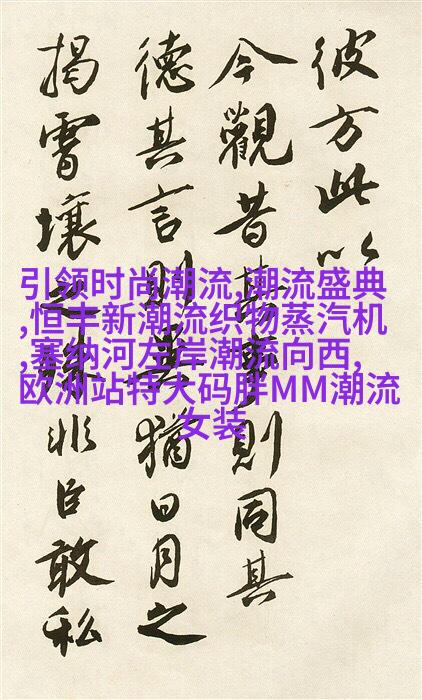 彼方此以
今觀昔其則同其
德其言則猶日月之
揭霄壤之殊非臣敢私
引领时尚潮流,潮流盛典
,恒丰新潮流织物蒸汽机
,塞纳河左岸潮流向西,
欧洲站特大码胖MM潮流
女装